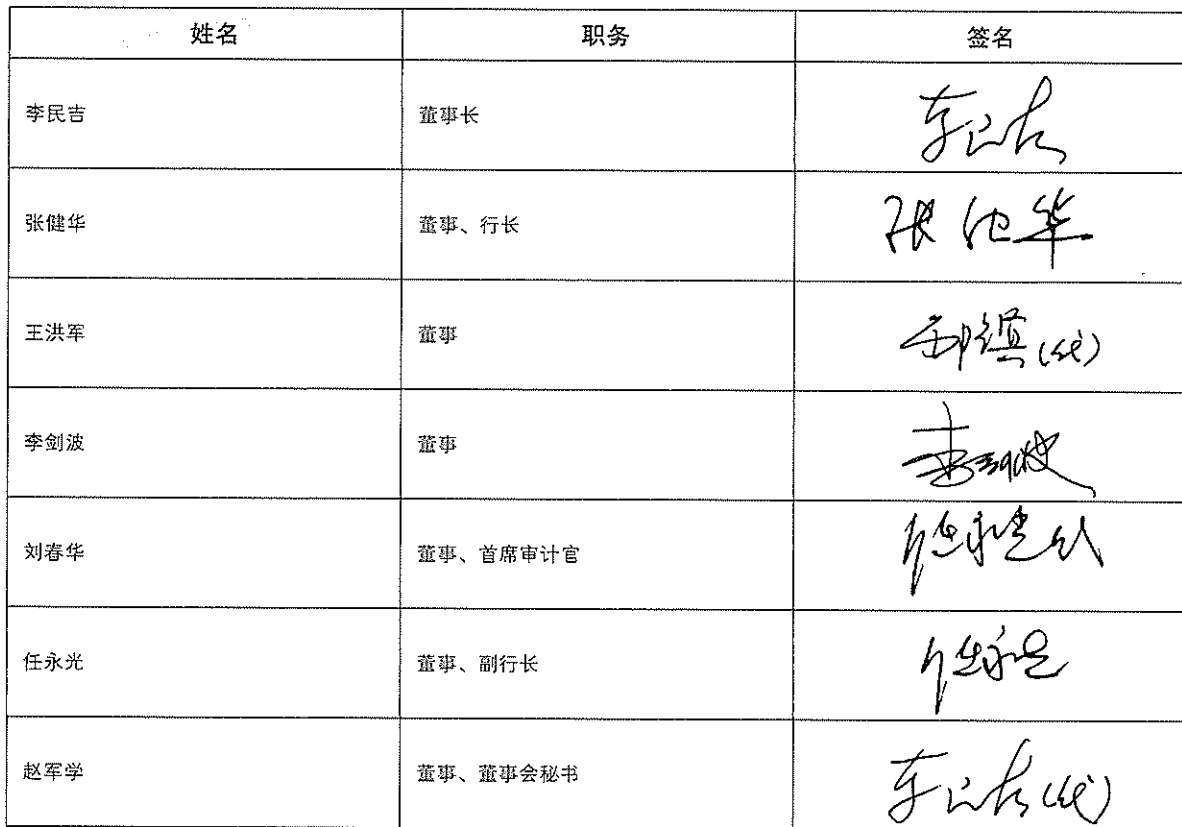 姓名 职务 签名
李民吉 董事长 李民吉
张健华 董事、行长 张健华
王洪军 董事 (代)
李剑波 董事 李剑波
刘春华 董事、首席审计官 任永光代
任永光 董事、副行长 任永光
赵军学 董事、董事会秘书 李民吉(代)